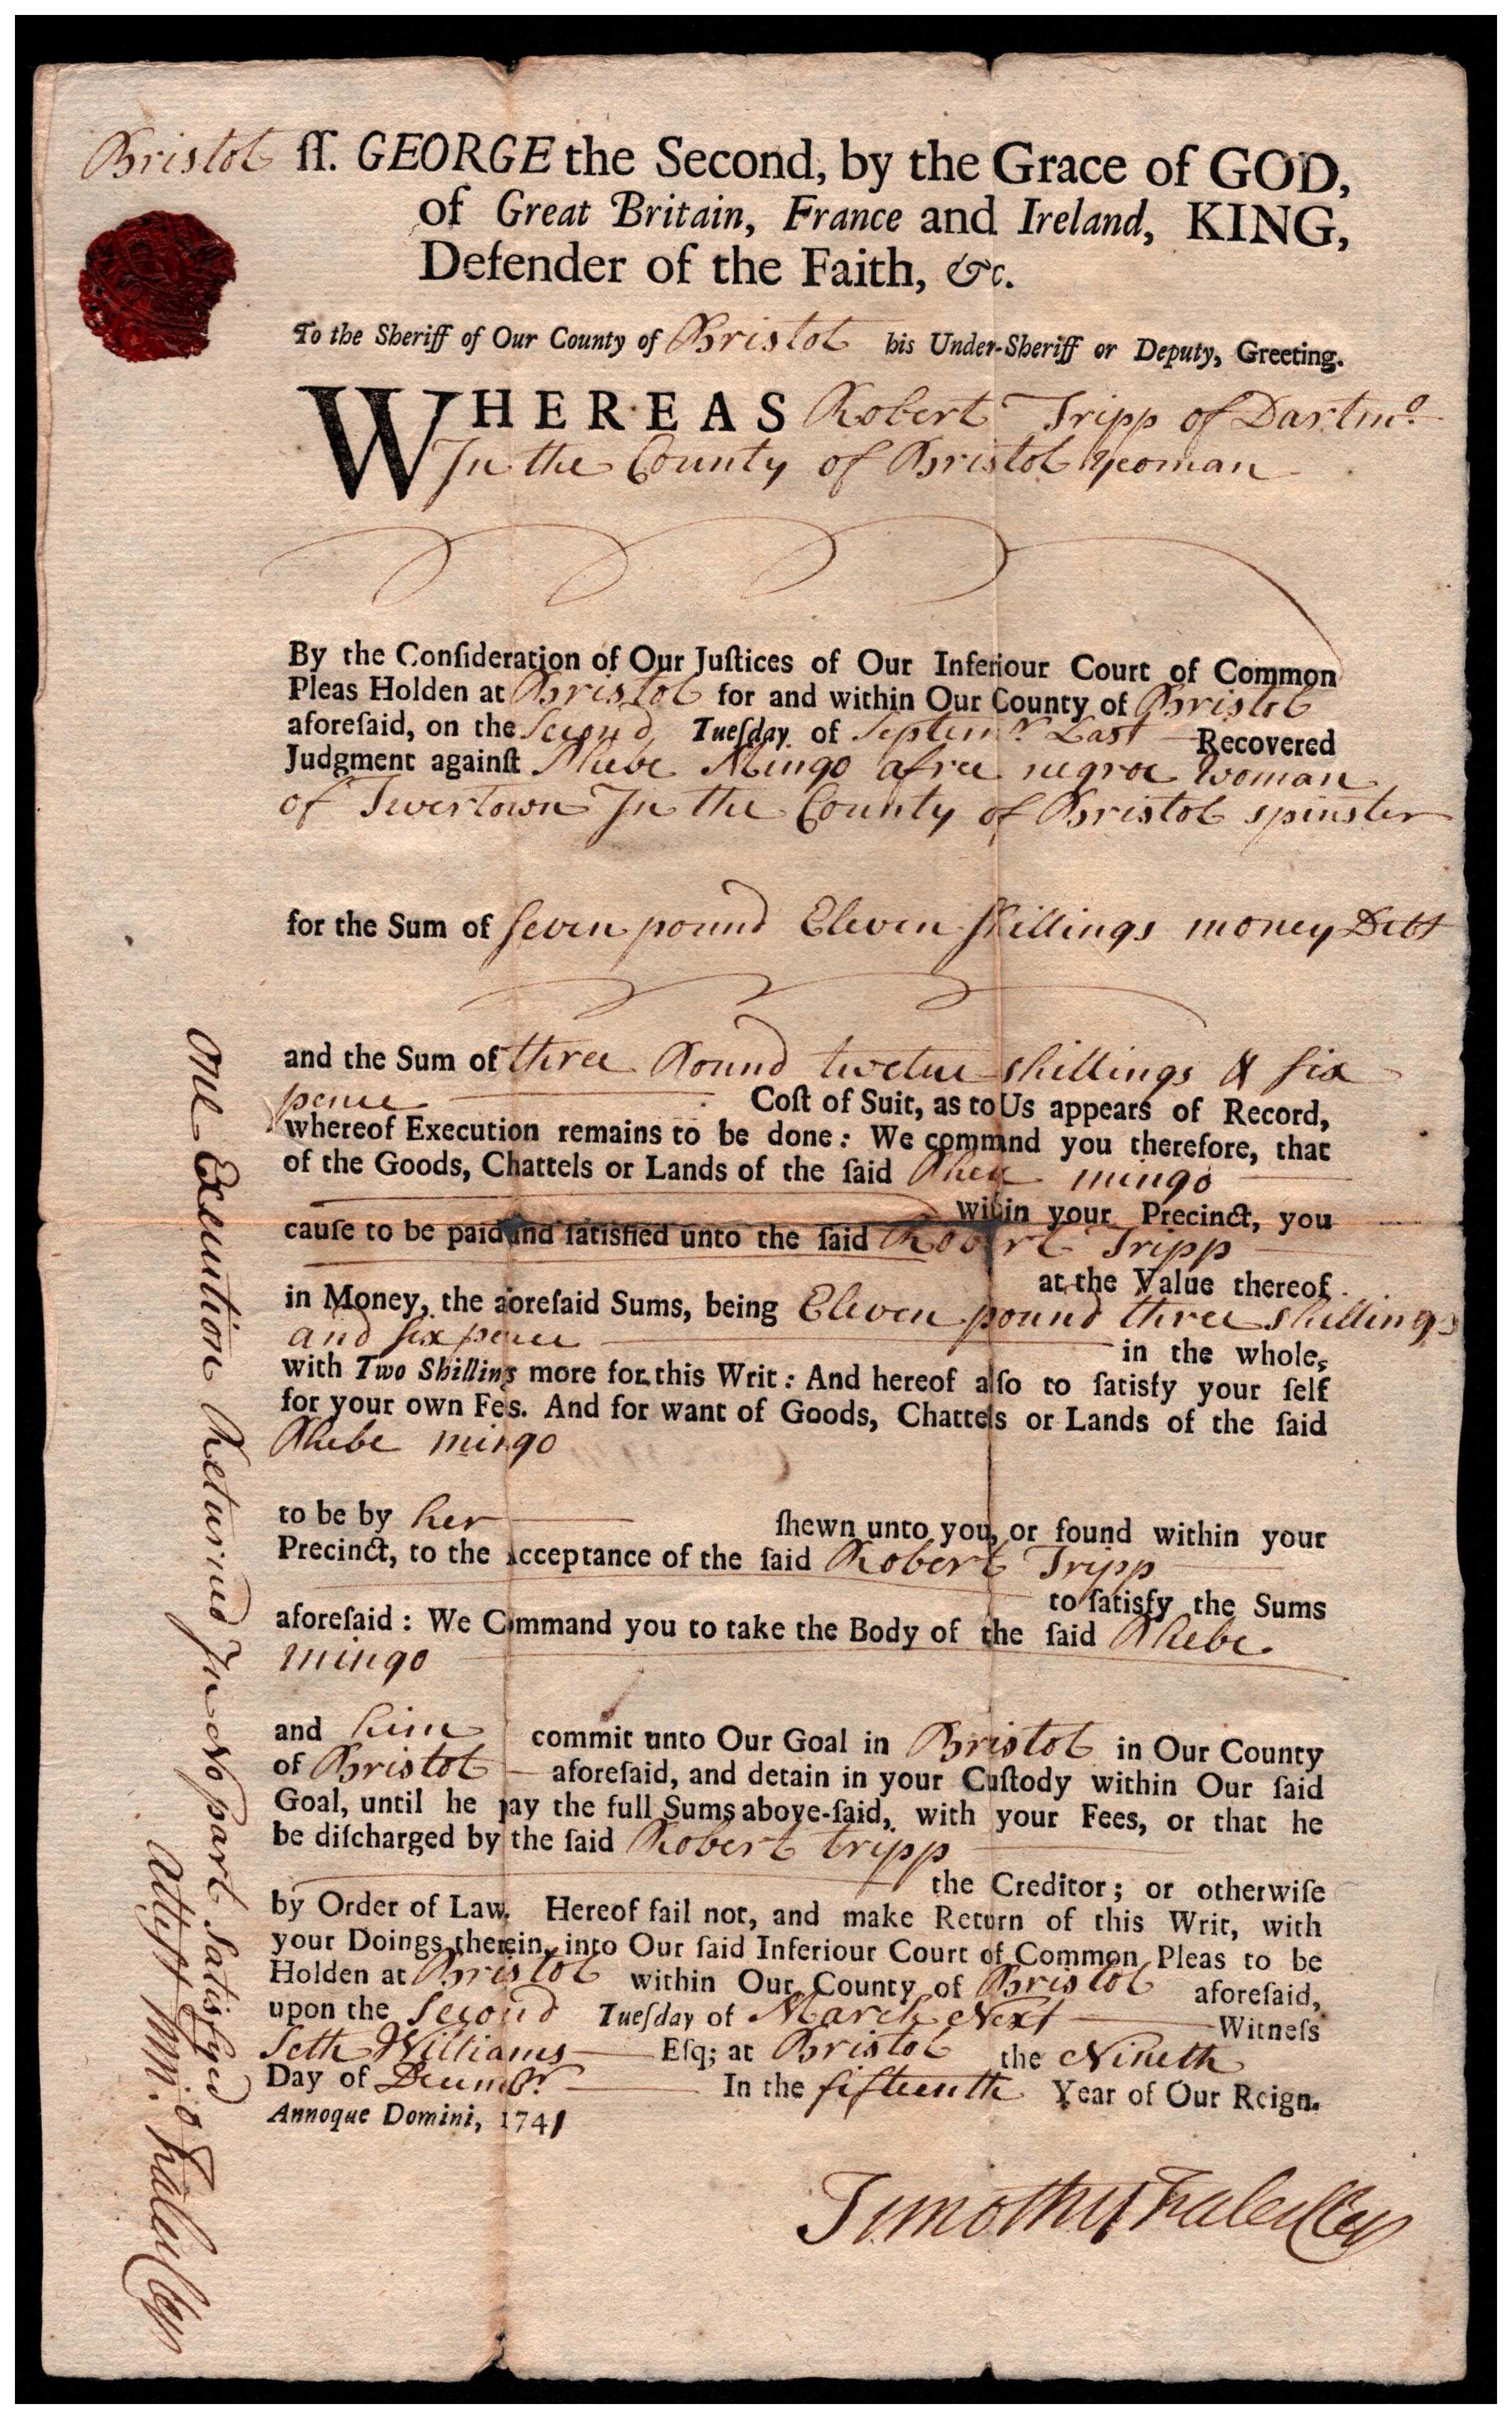 Bristol ſſ. GEORGE the Second, by the Grace of GOD,
of Great Britain, France and Ireland, KING,
Defender of the Faith, &c.
To the Sheriff of Our County of Bristol his Under-Sheriff or Deputy, Greeting.
WHEREAS Robert Tripp of Dartmo.
In the County of Bristol yeoman
By the Conſideration of Our Juſtices of Our Inferiour Court of Common
Pleas Holden at Bristol for and within Our County of Bristol
aforeſaid, on the Second Tueſday of Septemr. Last Recovered
Judgment againſt Phebe Mingo a free negroe woman
of Tivertown In the County of Bristol spinster
for the Sum of ſeven pound Eleven ſhillings money Debt
and the Sum of three Pound twelve shillings & six
pence Coſt of Suit, as to Us appears of Record,
whereof Execution remains to be done: We command you therefore, that
of the Goods, Chattels or Lands of the ſaid Phebe mingo
within your Precinct, you
cauſe to be paid and ſatisfied unto the ſaid Robert Tripp
at the Value thereof
in Money, the aforeſaid Sums, being Eleven pound three shillings
and ſix pence in the whole,
with Two Shillings more for this Writ: And hereof alſo to ſatisfy your ſelf
for your own Fees. And for want of Goods, Chattels or Lands of the ſaid
Phebe mingo
to be by her ſhewn unto you, or found within your
Precinct, to the Acceptance of the ſaid Robert Tripp
to ſatisfy the Sums
aforeſaid: We Command you to take the Body of the ſaid Phebe
mingo
and him commit unto Our Goal in Bristol in Our County
of Bristol aforeſaid, and detain in your Cuſtody within Our ſaid
Goal, until he pay the full Sums above-ſaid, with your Fees, or that he
be diſcharged by the ſaid Robert tripp
the Creditor; or otherwiſe
by Order of Law. Hereof fail not, and make Return of this Writ, with
your Doings therein, into Our ſaid Inferiour Court of Common Pleas to be
Holden at Bristol within Our County of Bristol aforeſaid,
upon the Second Tueſday of March Next Witneſs
Seth Williams Eſq; at Bristol the Nineth
Day of Decembr. In the fifteenth Year of Our Reign.
Annoque Domini, 1741
Timothy Fales Cler
one Execution Returned In No part Satisfyed
Attest Tim.o Fales Cler